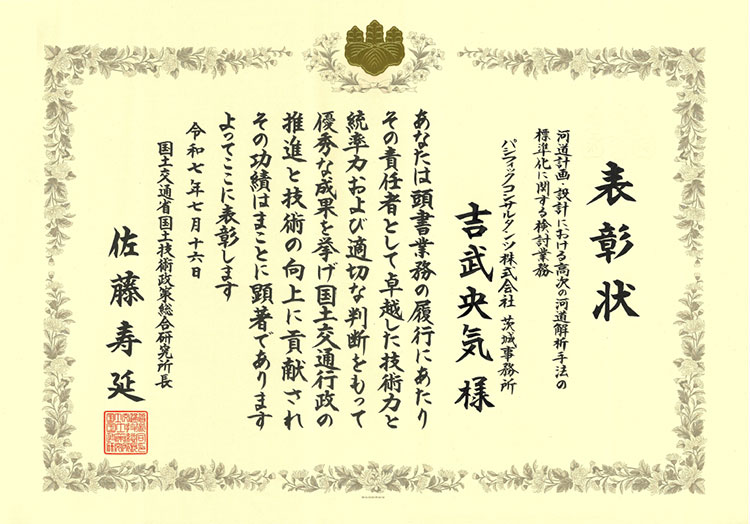 表彰状
河道計画・設計における高次の河道解析手法の
標準化に関する検討業務
パシフィックコンサルタンツ株式会社 茨城事務所
吉武央気様
あなたは頭書業務の履行にあたり
その責任者として卓越した技術力と
統率力および適切な判断をもって
優秀な成果を挙げ国土交通行政の
推進と技術の向上に貢献され
その功績はまことに顕著であります
よってここに表彰します
令和七年七月十六日
国土交通省国土技術政策総合研究所長
佐藤寿延